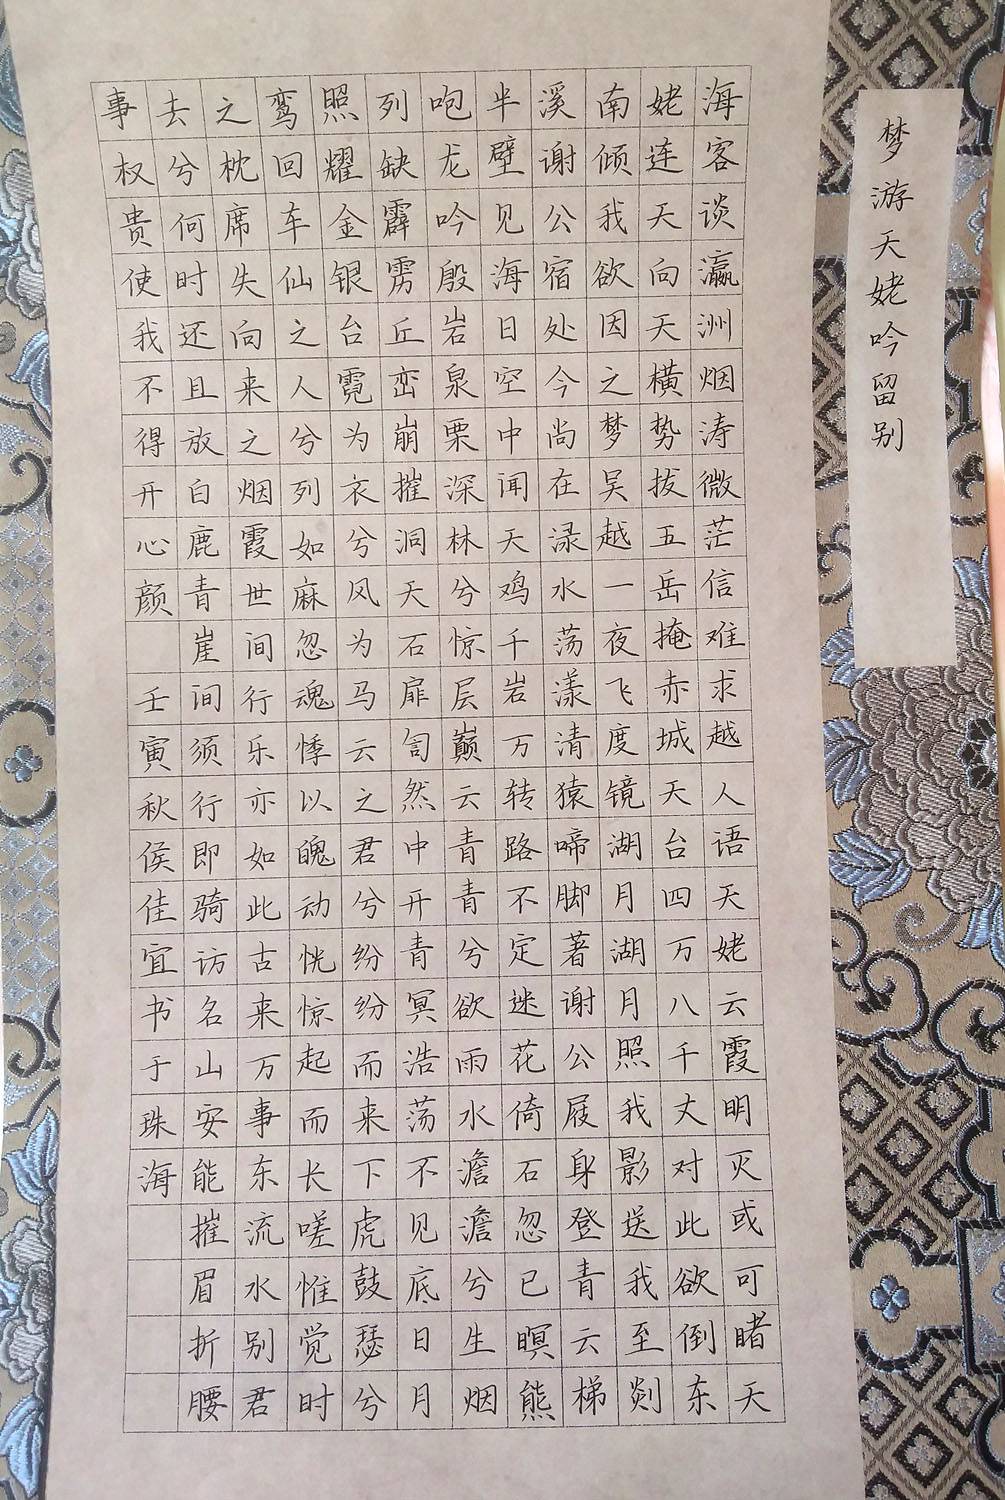 梦游天姥吟留别
海客谈瀛洲烟涛微茫信难求越人语天姥云霞明灭或可睹天
姥连天向天横势拔五岳掩赤城天台四万八千丈对此欲倒东
南倾我欲因之梦吴越一夜飞度镜湖月湖月照我影送我至剡
溪谢公宿处今尚在渌水荡漾清猿啼脚著谢公屐身登青云梯
半壁见海日空中闻天鸡千岩万转路不定迷花倚石忽已暝熊
咆龙吟殷岩泉栗深林兮惊层巅云青青兮欲雨水澹澹兮生烟
列缺霹雳丘峦崩摧洞天石扉訇然中开青冥浩荡不见底日月
照耀金银台霓为衣兮风为马云之君兮纷纷而来下虎鼓瑟兮
鸾回车仙之人兮列如麻忽魂悸以魄动恍惊起而长嗟惟觉时
之枕席失向来之烟霞世间行乐亦如此古来万事东流水别君
去兮何时还且放白鹿青崖间须行即骑访名山安能摧眉折腰
事权贵使我不得开心颜 壬寅秋侯佳宜书于珠海